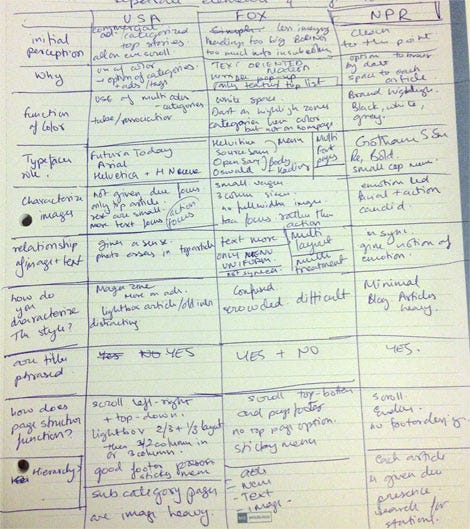 USA FOX NPR
initial perception
commercial
ad categorized
top stories
allow on scroll
less imagery
headings too big
too much info
clean
to the point
Why
use of color
ads/tags
TEXT ORIENTED
only featured top list
option to browse
by date
space to each
article
Function of Color
use of multi color
- categories
White space.
categories have color
but not on homepage
Brand highlight.
Black, white,
grey.
Typeface role.
Futura Today
Arial
Helvetica + HN Neue
Helvetica
Source Sans
Open Sans / body
Oswald
Main
Heading
Multi
Font
pages
Gotham SSm
Rg, Bold.
small cap menu
Characterize images
not given due focus
only top article.
rest are small.
more text focus
action
focus
small images
3 column sizes
full width image
face focus. rather than
action
emotion led
facial + action
candid.
relationship of image + text
gives a sense.
photo essays in top article
text more
ONLY MENU
UNIFORM
not synced.
Multi
layout
multi
treatment
in sync.
give notion of
emotion.
how do you characterize the style?
Magazine.
more on ads.
lightbox article/old info
distracting
Confused
crowded difficult
Minimal
Blog Articles
heavy.
are titles phrased
Yes NO YES
YES + NO
YES.
how does page structure function?
scroll left-right
+ top-down.
lightbox 2/3 + 1/3 layout
then 3/2 column in
or 3 column.
good footer
sticky menu
scroll top-bottom
and page footer
no top page option.
sticky menu
scroll.
Endless
no footer design.
Hierarchy
sub category pages
are image heavy.
- ads
- Menu
- Text
- image.
each article
is given due
presence
search for
station.